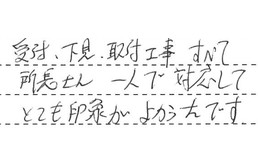 受付、下見、取付工事 すべて
所長さん 一人で対応して
とても印象がよかったです